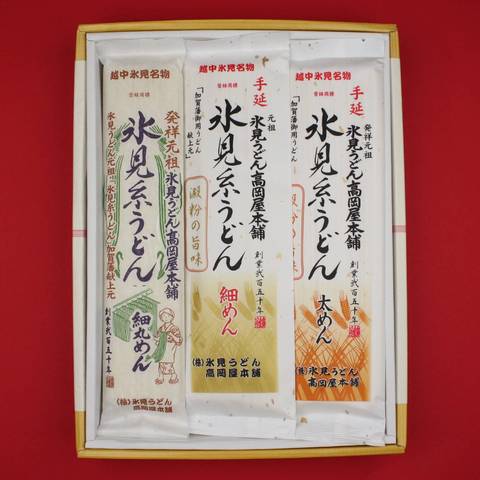 越中氷見名物
登録商標
発祥元祖
氷見うどん高岡屋本舗
創業弐百五十年
氷見糸うどん
氷見うどん元祖「氷見糸うどん」加賀藩献上元
細丸めん
(株)氷見うどん
高岡屋本舗
越中氷見名物
登録商標
手延
元祖
氷見うどん高岡屋本舗
創業弐百五十年
氷見糸うどん
「加賀藩御用うどん
献上元」
澱粉の旨味
細めん
(株)氷見うどん
高岡屋本舗
越中氷見名物
登録商標
手延
発祥元祖
氷見うどん高岡屋本舗
創業弐百五十年
氷見糸うどん
「加賀藩御用うどん
献上元」
澱粉の旨味
太めん
(株)氷見うどん
高岡屋本舗